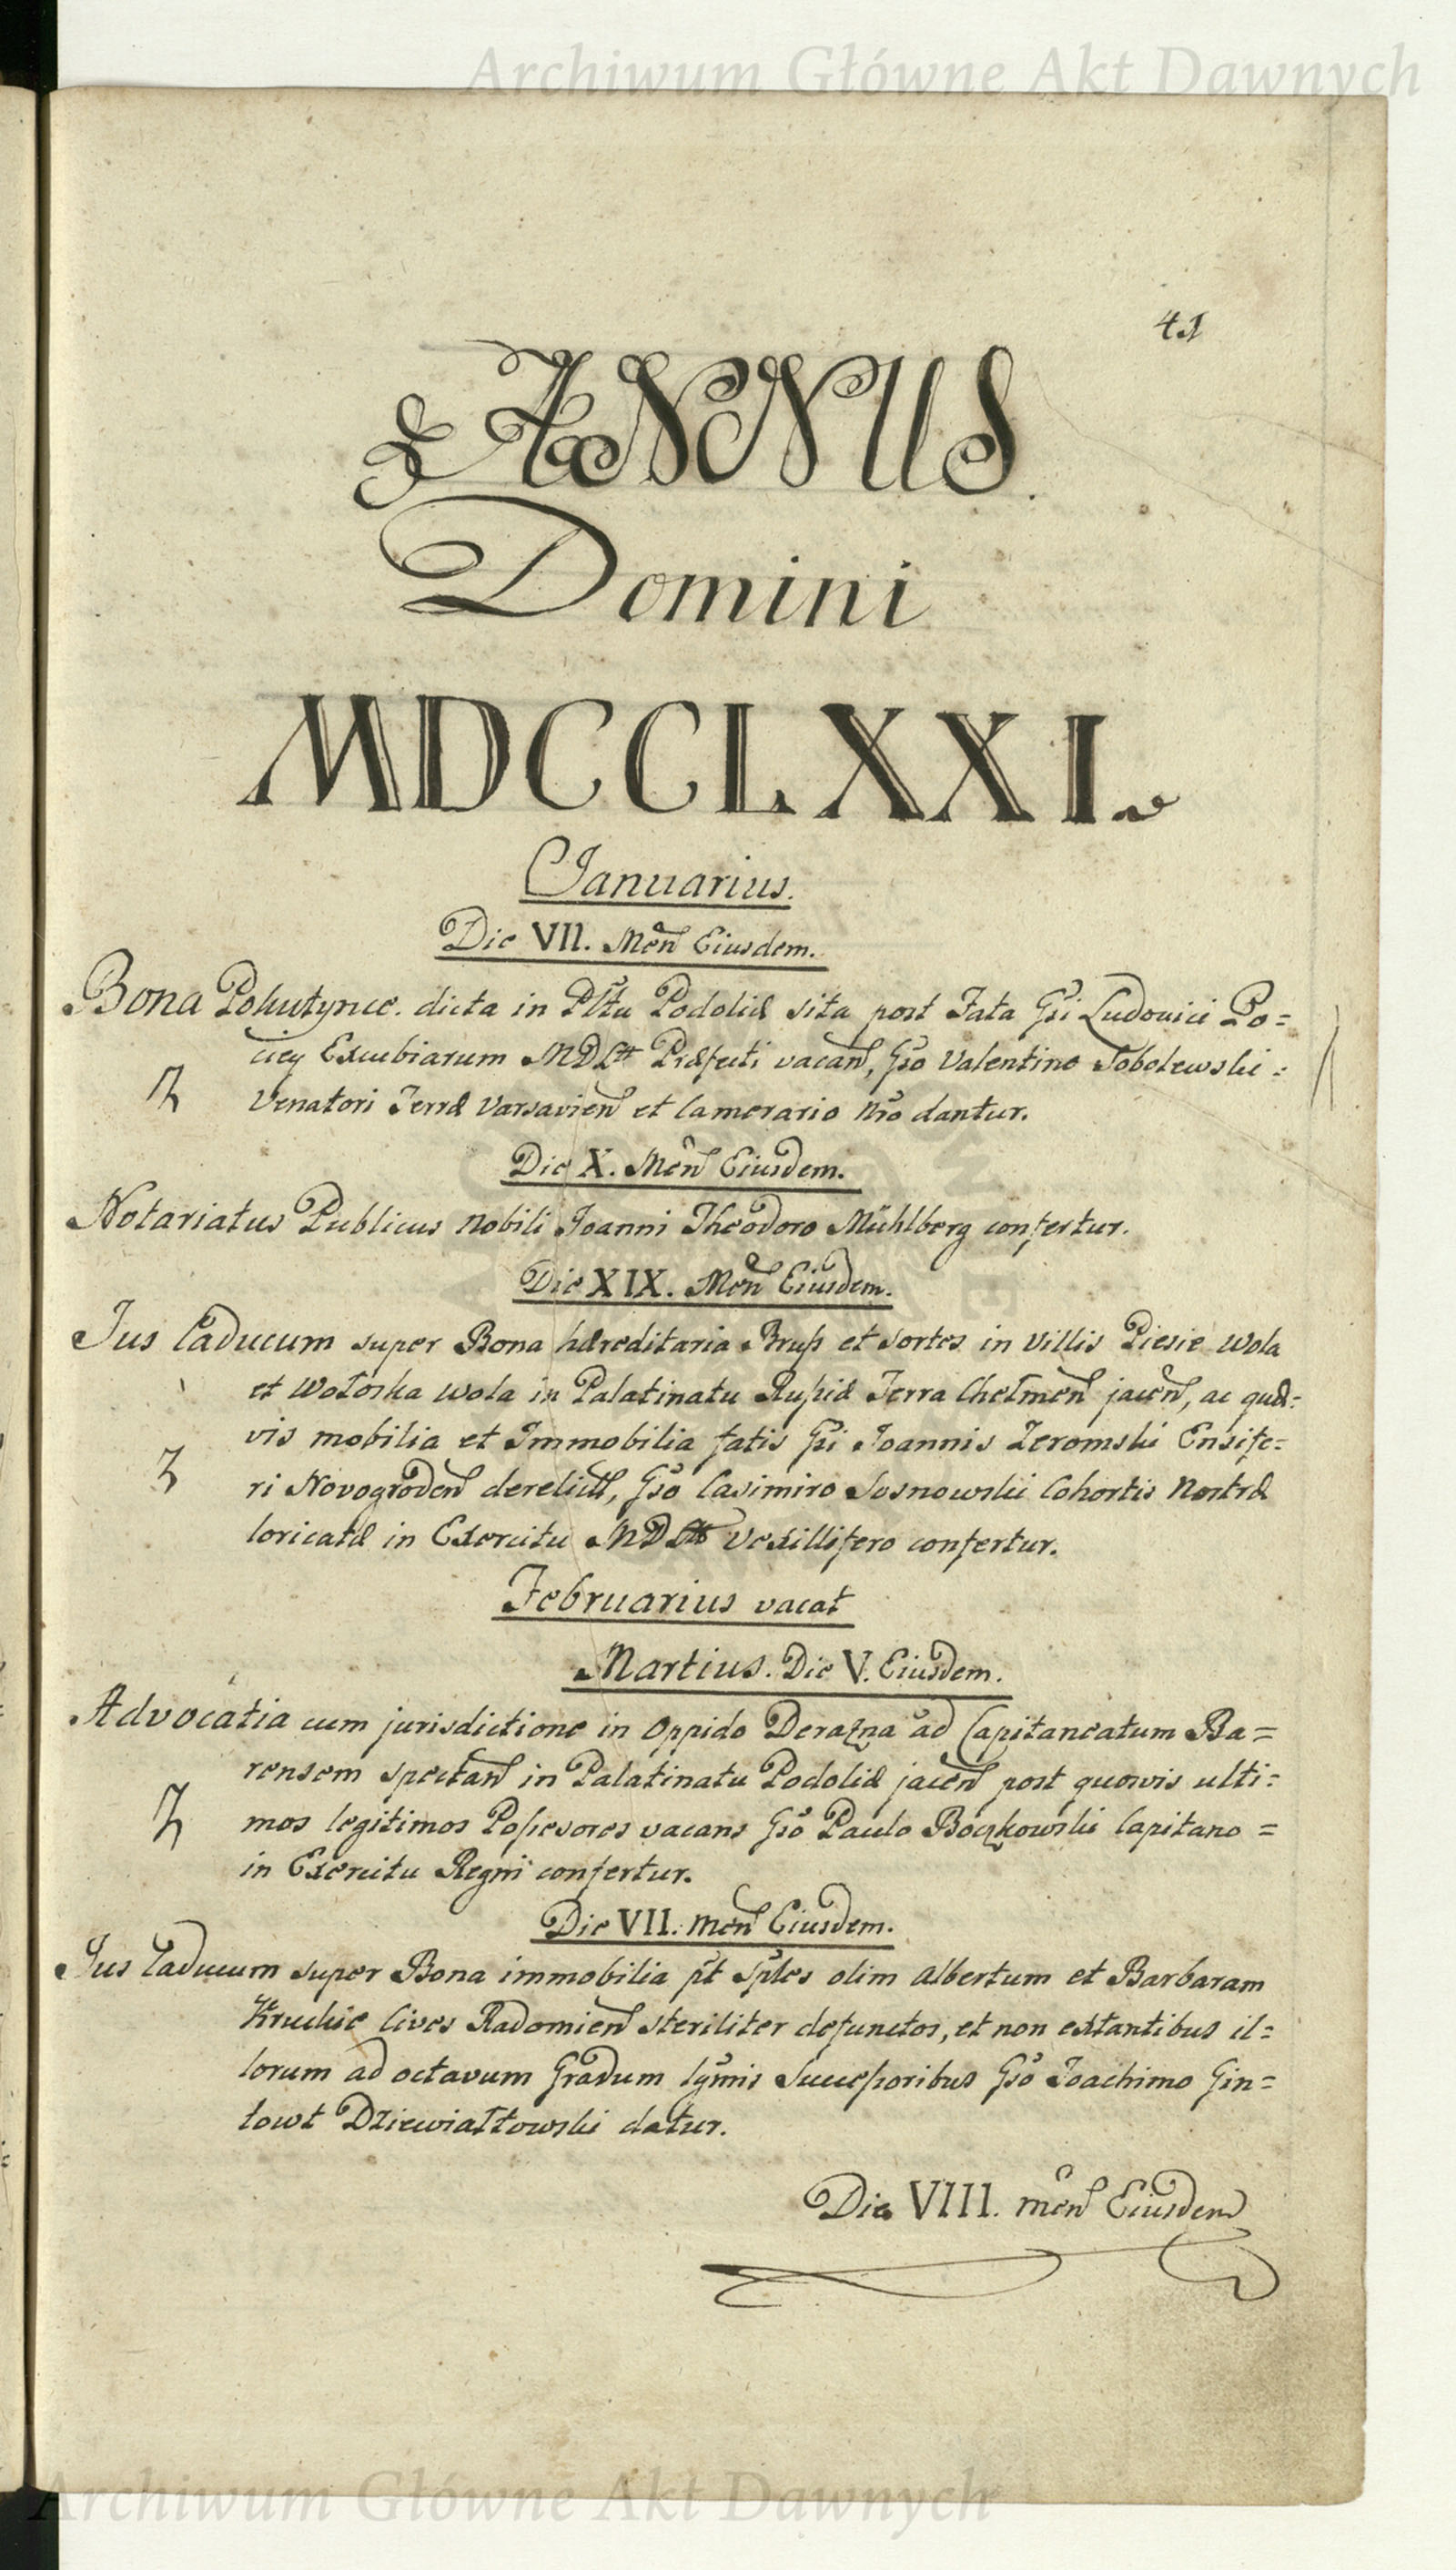 Archiwum Główne Akt Dawnych
41
ANNUS
Domini
MDCCLXXI.
Januarius.
Die VII. Men̄ Eiusdem.
Bona Pokutynce. dicta in Plt̃u Podoliæ sita post Fata Gsi Ludovici Po=
ciey Excubiarum MDLtt Præfecti vacan̄, Gso Valentino Sobolewski=
Venatori Terræ Varsavien̄ et Camerario Nro dantur.
Die X. Men̄ Eiusdem.
Notariatus Publicus Nobili Joanni Theodoro Mühlberg confertur.
Die XIX. Men̄ Eiusdem.
Jus Caducum super Bona hæreditaria Bruß et sortes in Villis Piesie Wola
et Wołoska Wola in Palatinatu Rußiæ Terra Chełmen̄ jacen̄, ac quæ=
vis mobilia et Immobilia fatis Gsi Joannis Zeromski Ensife=
ri Novogroden̄ derelict̄, Gso Casimiro Sosnowski Cohortis Nostræ
loricatæ in Exercitu MDLtt Vexillifero confertur.
Februarius vacat
Martius. Die V. Eiusdem.
Advocatia cum jurisdictione in Oppido Derażna ad Capitaneatum Ba=
rensem spectan̄ in Palatinatu Podoliæ jacen̄ post quosvis ulti=
mos legitimos Poßesores vacans Gso Paulo Boczkowski Capitano=
in Exercitu Regni confertur.
Die VII. men̄ Eiusdem.
Jus Caducum super Bona immobilia p̃t Sp̃les olim Albertum et Barbaram
Kruckie Cives Radomien̄ steriliter defunctos, et non extantibus il=
lorum ad octavum Gradum lgm̃is Succeßoribus Gso Joachimo Gin=
towt Dziewiałtowski datur.
Die VIII. men̄ Eiusdem
Archiwum Główne Akt Dawnych